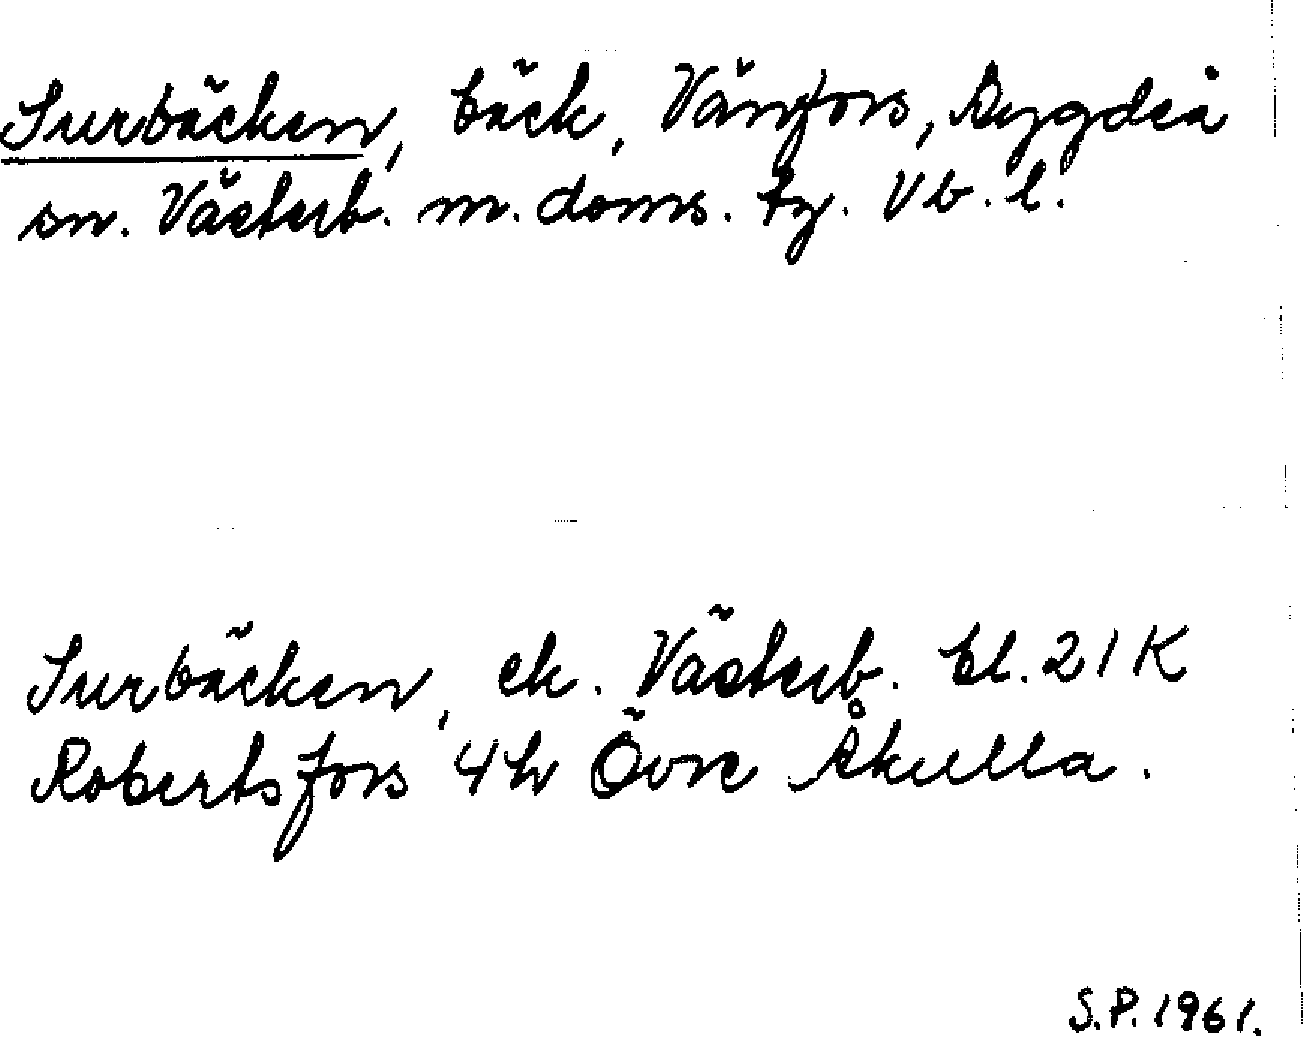 Surbäcken, bäck, Vänfors, Bygdeå
sn. Västerb. m. doms. tg. Vb. l.
Surbäcken, ek. Västerb. bl. 21 K
Robertsfors 4h Övre Åkulla.
S.P. 1961.